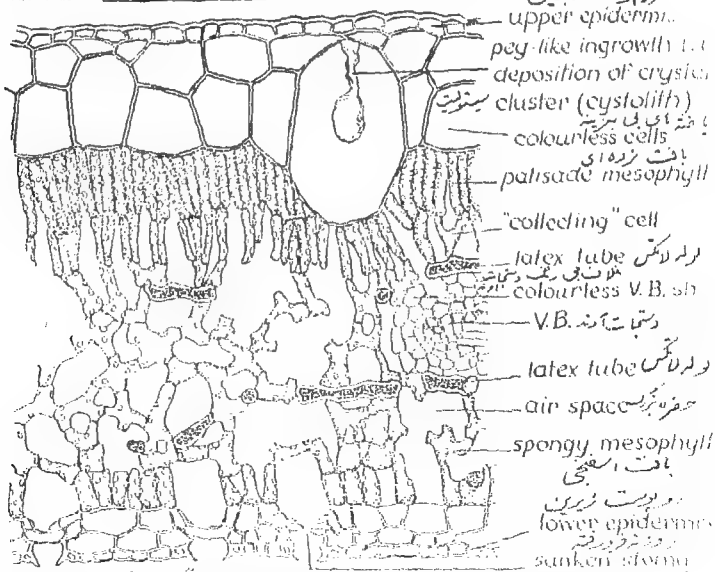 upper epidermi
pey-like ingrowth
deposition of crysta
cluster (cystolith) سیستولیت
colourless cells
بافت نرده ای
palisade mesophyll
"collecting" cell
latex tube لوله لاتکس
colourless V.B. sh
V.B. دستجات آوند
latex tube لوله لاتکس
air space
spongy mesophyll
بافت اسفنجی
lower epidermi
sunken stoma